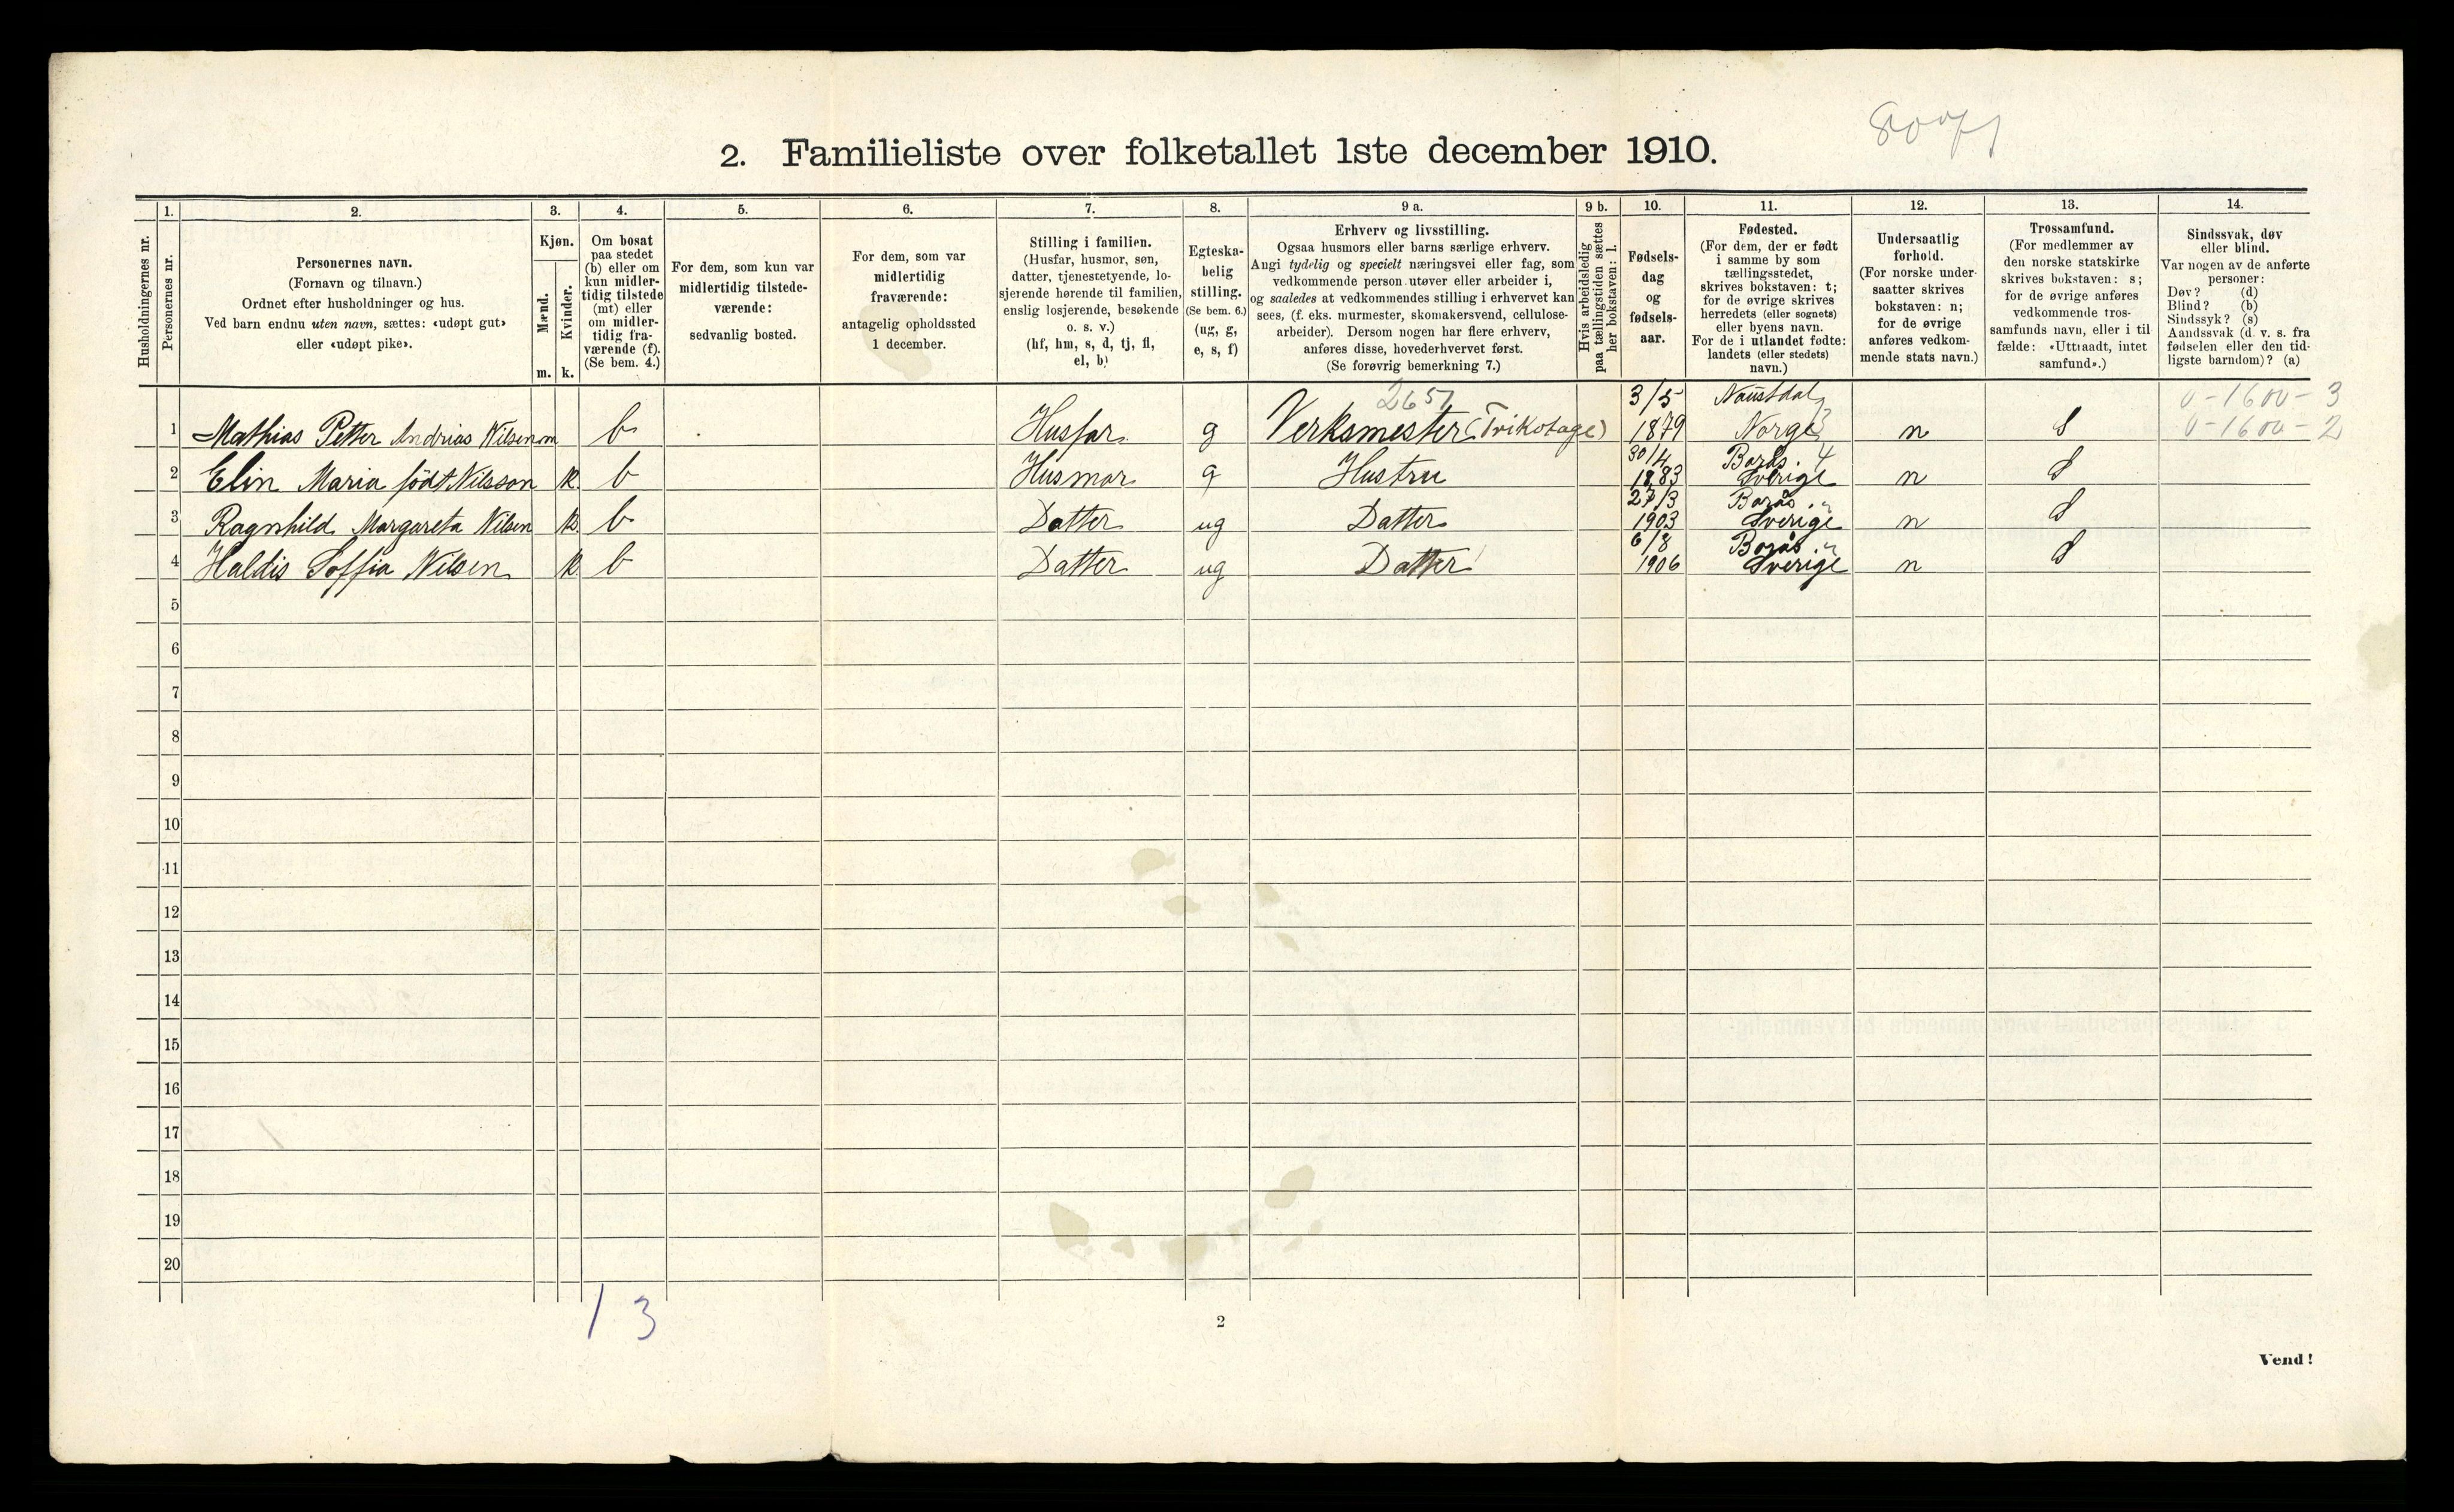 2. Familieliste over folketallet 1ste december 1910.
1. 2. 3. 4. 5. 6. 7. 8. 9 a. 9 b. 10. 11. 12. 13. 14.
Husholdningernes nr.
Personernes nr.
Personernes navn.
(Fornavn og tilnavn.)
Ordnet efter husholdninger og hus.
Ved barn endnu uten navn, sættes: «udøpt gut»
eller «udøpt pike».
Kjøn.
Mænd.
Kvinder.
m. k.
Om bosat
paa stedet
(b) eller om
kun midler-
tidig tilstede
(mt) eller
om midler-
tidig fra-
værende (f).
(Se bem. 4.)
For dem, som kun var
midlertidig tilstede-
værende:
sedvanlig bosted.
For dem, som var
midlertidig
fraværende:
antagelig opholdssted
1 december.
Stilling i familien.
(Husfar, husmor, søn,
datter, tjenestetyende, lo-
sjerende hørende til familien,
enslig losjerende, besøkende
o. s. v.)
(hf, hm, s, d, tj, fl,
el, b)
Egteska-
belig
stilling.
(Se bem. 6.)
(ug, g,
e, s, f)
Erhverv og livsstilling.
Ogsaa husmors eller barns særlige erhverv.
Angi tydelig og specielt næringsvei eller fag, som
vedkommende person utøver eller arbeider i,
og saaledes at vedkommendes stilling i erhvervet kan
sees, (f. eks. murmester, skomakersvend, cellulose-
arbeider). Dersom nogen har flere erhverv,
anføres disse, hovederhvervet først.
(Se forøvrig bemerkning 7.)
Hvis arbeidsledig
paa tællingstiden sættes
her bokstaven: l.
Fødsels-
dag
og
fødsels-
aar.
Fødested.
(For dem, der er født
i samme by som
tællingsstedet,
skrives bokstaven: t;
for de øvrige skrives
herredets (eller sognets)
eller byens navn.
For de i utlandet fødte:
landets (eller stedets)
navn.)
Undersaatlig
forhold.
(For norske under-
saatter skrives
bokstaven: n;
for de øvrige
anføres vedkom-
mende stats navn.)
Trossamfund.
(For medlemmer av
den norske statskirke
skrives bokstaven: s;
for de øvrige anføres
vedkommende tros-
samfunds navn, eller i til-
fælde: «Uttraadt, intet
samfund».)
Sindssvak, døv
eller blind.
Var nogen av de anførte
personer:
Døv? (d)
Blind? (b)
Sindssyk? (s)
Aandssvak (d. v. s. fra
fødselen eller den tid-
ligste barndom)? (a)
2651 3/5 Naustdal 0-1600-3
1 Mathias Petter Andrias Nilsen m b Husfar g Verksmester (Trikotage) 1879 Norge n S 0-1600-2
30/4 Borås. 4
2 Elin Maria födt Nilsson k b Husmor g Hustru 1883 Sverige n S
27/3 Borås. "
3 Ragnhild Margareta Nilsen k b Datter ug Datter 1903 Sverige n S
6/8 Borås. "
4 Haldis Soffia Nilsen k b Datter ug Datter 1906 Sverige n S
5
6
7
8
9
10
11
12
13
14
15
16
17
18
19
20
1 3
2
Vend!